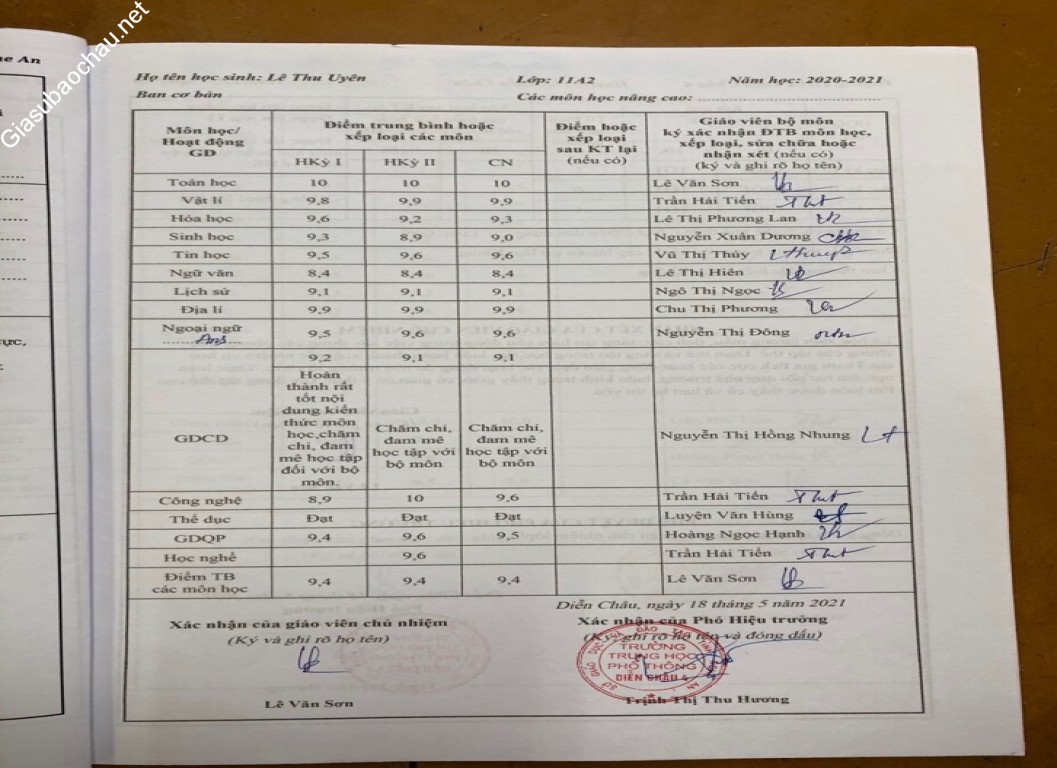 Giasubaochau.net
he An
Họ tên học sinh: Lê Thu Uyên Lớp: 11A2 Năm học: 2020-2021
Ban cơ bản Các môn học nâng cao: ................................
Môn học/ Hoạt động GD Điểm trung bình hoặc xếp loại các môn Điểm hoặc xếp loại sau KT lại (nếu có) Giáo viên bộ môn ký xác nhận ĐTB môn học, xếp loại, sửa chữa hoặc nhận xét (nếu có) (ký và ghi rõ họ tên)
HKỳ I HKỳ II CN
Toán học 10 10 10 Lê Văn Sơn
Vật lí 9,8 9,9 9,9 Trần Hải Tiến
Hóa học 9,6 9,2 9,3 Lê Thị Phương Lan
Sinh học 9,3 8,9 9,0 Nguyễn Xuân Dương
Tin học 9,5 9,6 9,6 Vũ Thị Thủy
Ngữ văn 8,4 8,4 8,4 Lê Thị Hiên
Lịch sử 9,1 9,1 9,1 Ngô Thị Ngọc
Địa lí 9,9 9,9 9,9 Chu Thị Phương
Ngoại ngữ Anh 9,5 9,6 9,6 Nguyễn Thị Đông
GDCD 9,2 9,1 9,1 Nguyễn Thị Hồng Nhung
Hoàn thành rất tốt nội dung kiến thức môn học,chăm chỉ, đam mê học tập đối với bộ môn.
Chăm chỉ, đam mê học tập với bộ môn
Chăm chỉ, đam mê học tập với bộ môn
Công nghệ 8,9 10 9,6 Trần Hải Tiến
Thể dục Đạt Đạt Đạt Luyện Văn Hùng
GDQP 9,4 9,6 9,5 Hoàng Ngọc Hạnh
Học nghề 9,6 Trần Hải Tiến
Điểm TB các môn học 9,4 9,4 9,4 Lê Văn Sơn
Diễn Châu, ngày 18 tháng 5 năm 2021
Xác nhận của giáo viên chủ nhiệm Xác nhận của Phó Hiệu trưởng
(Ký và ghi rõ họ tên) (Ký, ghi rõ họ tên và đóng dấu)
TRƯỜNG
TRUNG HỌC
PHỔ THÔNG
DIỄN CHÂU 4
Lê Văn Sơn Trịnh Thị Thu Hương